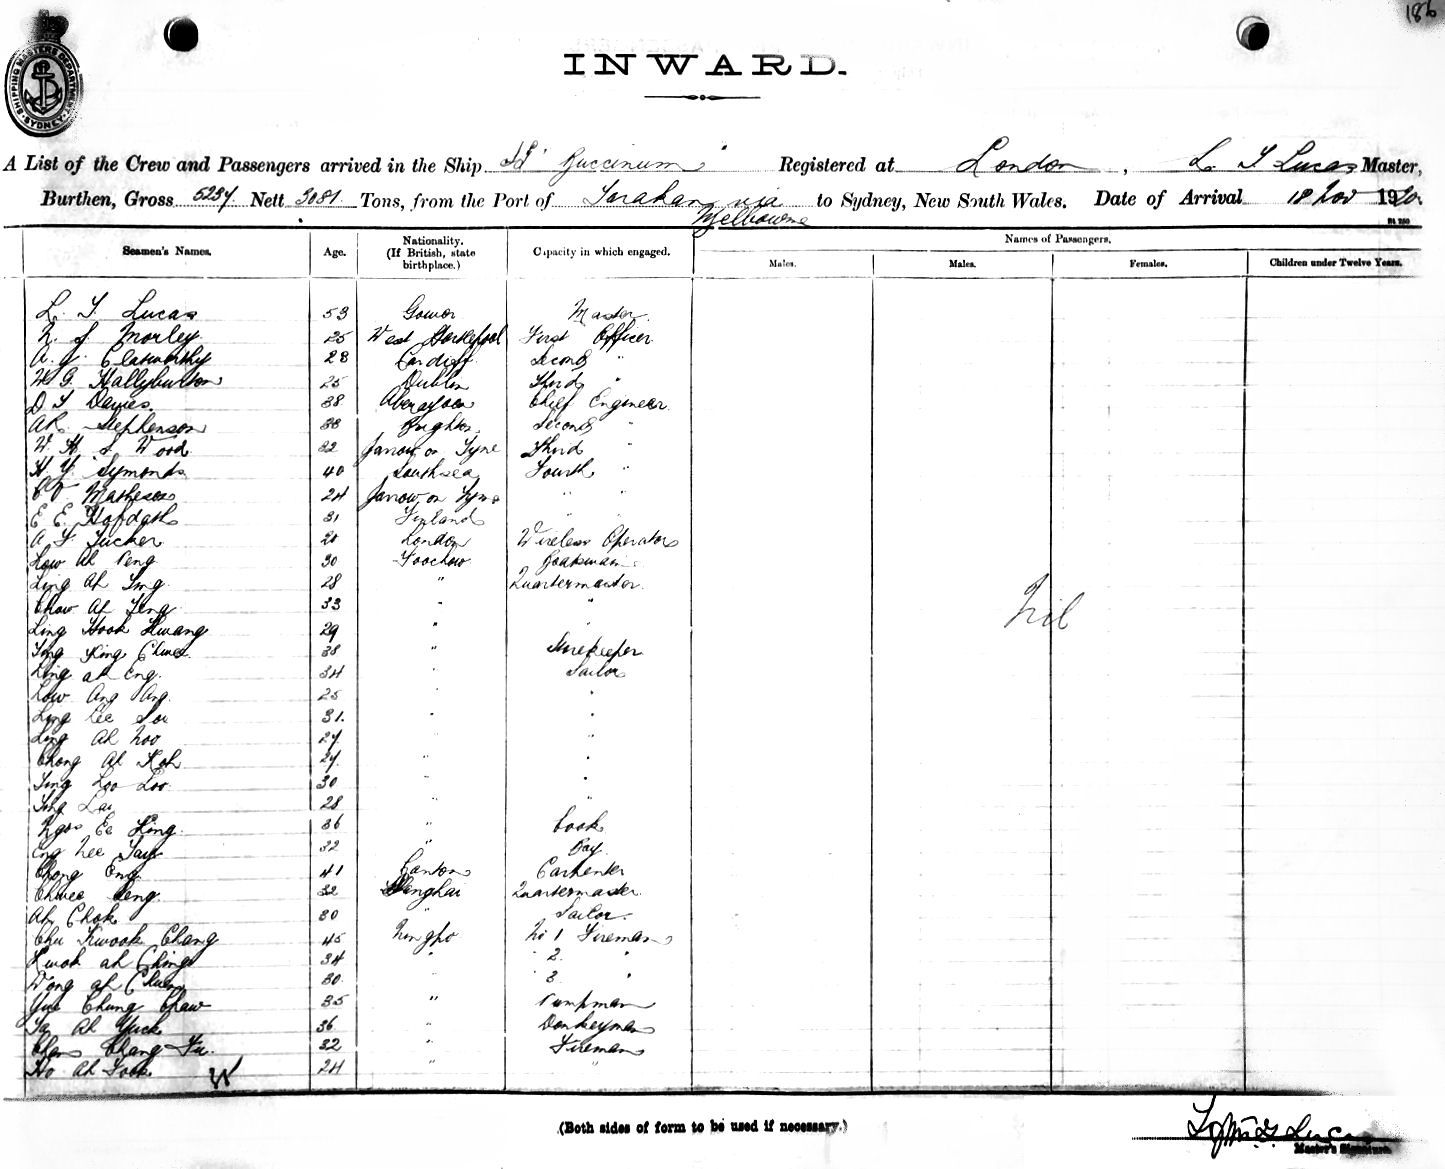 186
SHIPPING MASTERS DEPARTMENT SYDNEY
INWARD.
A List of the Crew and Passengers arrived in the Ship SS "Buccinum" Registered at London, L. T Lucas Master,
Burthen, Gross 5237 Nett 3081 Tons, from the Port of Tarakan via Melbourne to Sydney, New South Wales. Date of Arrival 18 Nov 1920.
Seamen's Names. Age. Nationality. (If British, state birthplace.) Capacity in which engaged. Names of Passengers.
Males. Males. Females. Children under Twelve Years.
L. T. Lucas 53 Gower Master
N. J. Morley 25 West Hartlepool First Officer
A. G. Clatworthy 28 Cardiff Second "
W G. Hallyburton 25 Dublin Third "
D T Davies 38 Aberayon Chief Engineer
AR Stephenson 38 Brighton Second "
W. H. S Wood 32 Jarrow on Tyne Third
H. Y. Symonds 40 Southsea Fourth "
Matheson 24 Jarrow on Tyne " "
E E. Hafdahl 31 Finland
A F Tucker Londo​n Wireless Operator
Low Ah Peng 30 Foochow Boatswain
Ling Ah Ting 28 " Quartermaster
Chow Ah Teng 33 " "
Ling Hook Kwang 29 "
Nil
Tong King Chwee 38 " Storekeeper
Ling ah Eng. 34 " Sailor
Low Ang Ang 25 " "
Ling Lee Soi 31. " "
Ling Ah Noo 27 " "
Chong Ah Koh 27. " "
Ting Loo Loo 30 " "
Tong Lai 28 " "
Ngoo Ee King. 36 " Cook
Eng Nee Tay 32 " Boy
Chong Eng 41 Canton Carpenter
Chwee Seng 32 Shanghai Quartermaster
Ah Chok 30 " Sailor
Chu Kwook Chang 45 Ningpo No 1 Fireman
Kwok ah Ching 34 " " 2. "
Wong ah Chuen 30 " 3 "
Yue Chung Chaw 35 " Pumpman
Ta Ah Yuck 36 " Donkeyman
Chan Chang Fu. 32 " Fireman
Ho Ah Fook 24 " "
(Both sides of form to be used if necessary.)
Master's Signature.